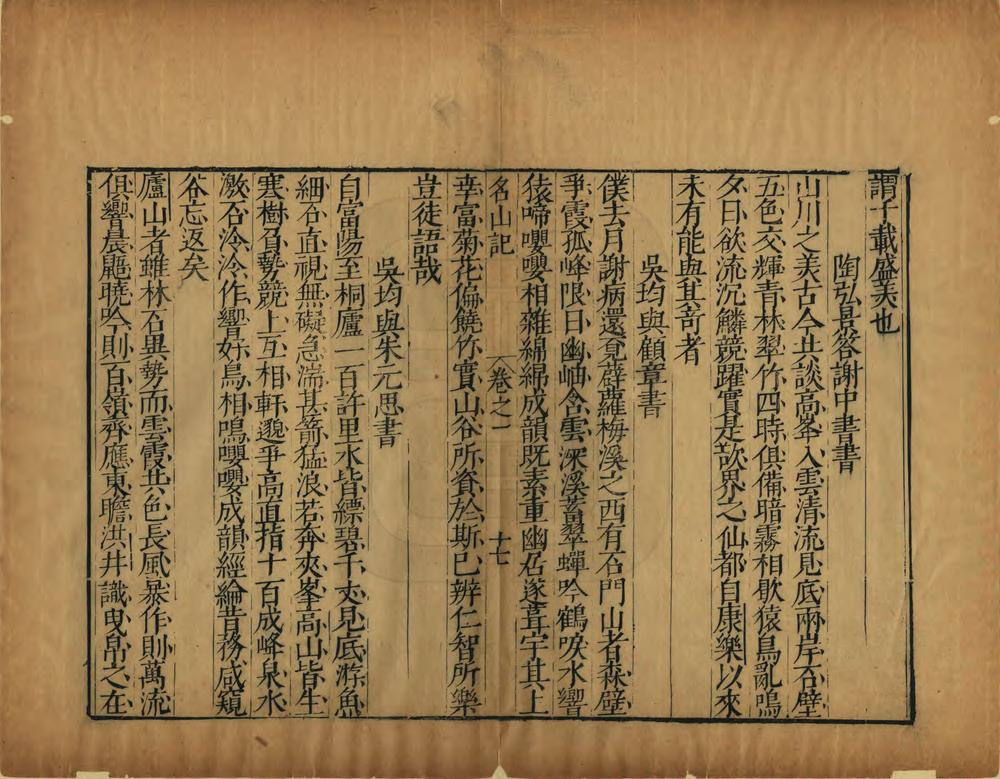 謂千載盛美也
陶弘景答謝中書書
山川之美古今共談高峯入雲清流見底兩岸石壁
五色交輝青林翠竹四時俱備曉霧相歇猿鳥亂鳴
夕日欲流沉鱗競躍實是欲界之仙都自康樂以來
未有能與其奇者
吳均與顧章書
僕去月謝病還覓薜蘿梅溪之西有石門山者森壁
爭霞孤峰限日幽岫含雲深溪蓄翠蟬吟鶴唳水響
猿啼嚶嚶相雜綿綿成韻既素重幽居遂葺宇其上
名山記 卷之一 十七
幸富菊花偏饒竹實山谷所資於斯已辨仁智所樂
豈徒語哉
吳均與朱元思書
自富陽至桐廬一百許里水皆縹碧千丈見底游魚
細石直視無礙急湍甚箭猛浪若奔夾峯高山皆生
寒樹負勢競上互相軒邈爭高直指千百成峰泉水
激石泠泠作響好鳥相鳴嚶嚶成韻經綸昔務咸窺
谷忘返矣
廬山者雖林石異勢而雲霞共色長風暴作則萬流
俱響晨鼯曉吟則百嶺齊應東瞻洪井識曳帛之在